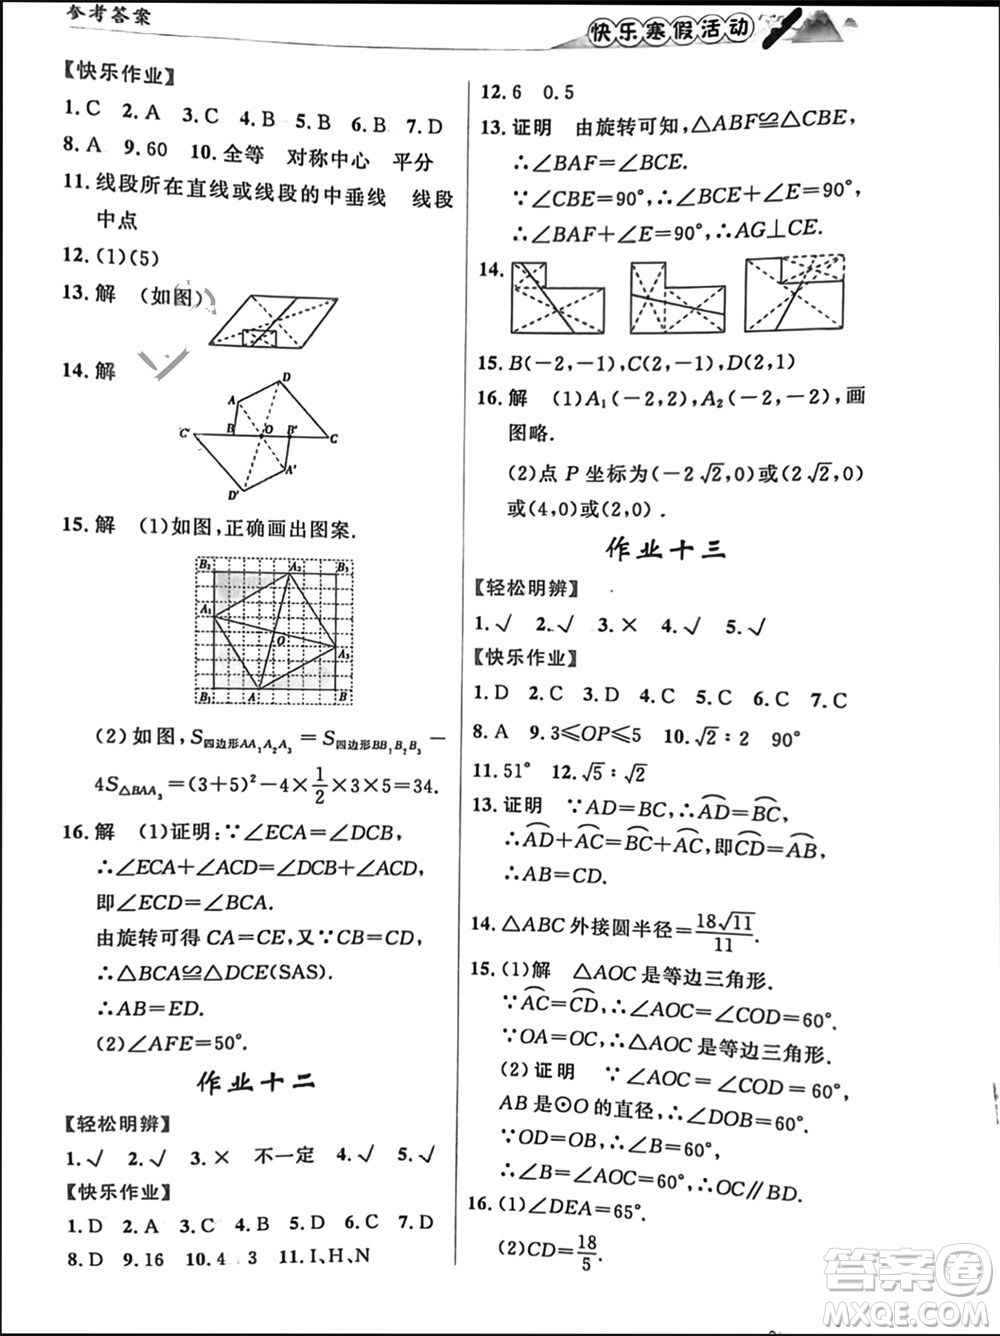 参考答案
快乐寒假活动
【快乐作业】
1. C 2. A 3. C 4. B 5. B 6. B 7. D
8. A 9. 60 10. 全等 对称中心 平分
11. 线段所在直线或线段的中垂线 线段
中点
12. (1)(5)
13. 解 (如图)
14. 解
D
A
B O B′
C′ C
A′
D′
15. 解 (1)如图,正确画出图案.
B₂ A₂ B₁
A₁
O
A₃
B₃ A B
(2)如图,S四边形AA₁A₂A₃=S四边形BB₁B₂B₃−
4S△BAA₃=(3+5)²−4×1/2×3×5=34.
16. 解 (1)证明:∵∠ECA=∠DCB,
∴∠ECA+∠ACD=∠DCB+∠ACD,
即∠ECD=∠BCA.
由旋转可得CA=CE,又∵CB=CD,
∴△BCA≌△DCE(SAS).
∴AB=ED.
(2)∠AFE=50°.
作业十二
【轻松明辨】
1. √ 2. √ 3. × 不一定 4. √ 5. √
【快乐作业】
1. D 2. A 3. C 4. B 5. D 6. C 7. D
8. D 9. 16 10. 4 3 11. I、H、N
12. 6 0.5
13. 证明 由旋转可知,△ABF≌△CBE,
∴∠BAF=∠BCE.
∵∠CBE=90°,∴∠BCE+∠E=90°,
∴∠BAF+∠E=90°,∴AG⊥CE.
14.
15. B(−2,−1),C(2,−1),D(2,1)
16. 解 (1)A₁(−2,2),A₂(−2,−2),画
图略.
(2)点 P 坐标为(−2√2,0)或(2√2,0)
或(4,0)或(2,0).
作业十三
【轻松明辨】
1. √ 2. √ 3. × 4. √ 5. √
【快乐作业】
1. D 2. C 3. D 4. C 5. C 6. C 7. C
8. A 9. 3≤OP≤5 10. √2∶2 90°
11. 51° 12. √5∶√2
13. 证明 ∵AD=BC,∴A͡D=B͡C,
∴A͡D+A͡C=B͡C+A͡C,即C͡D=A͡B,
∴AB=CD.
14. △ABC外接圆半径=18√11/11.
15. (1)解 △AOC是等边三角形.
∵A͡C=C͡D,∴∠AOC=∠COD=60°.
∵OA=OC,∴△AOC是等边三角形.
(2)证明 ∵∠AOC=∠COD=60°,
AB是⊙O的直径,∴∠DOB=60°.
∵OD=OB,∴∠B=60°.
∴∠B=∠AOC=60°,∴OC∥BD.
16. (1)∠DEA=65°.
(2)CD=18/5.
答案圈
MXQE.COM